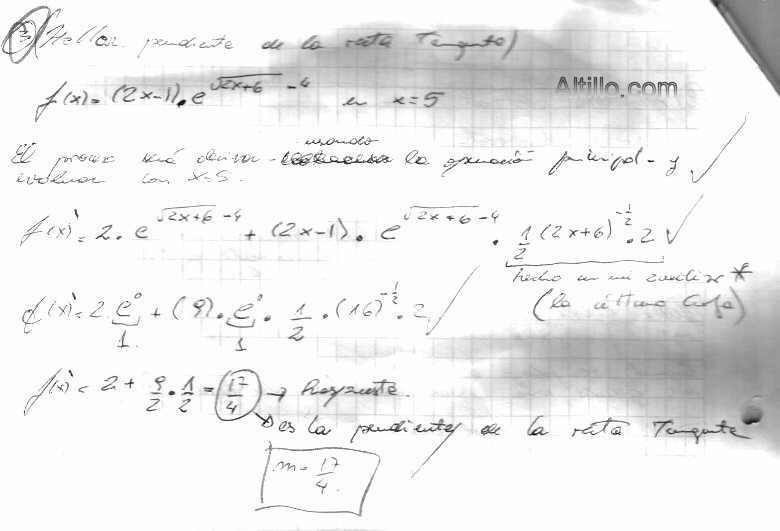 3) (Hallar pendiente de la recta Tangente)
Altillo.com
f(x) = (2x-1).e^{√(2x+6) - 4} en x=5
El proceso será derivar usando la operación principal - y
evaluar con x=5.
f(x)' = 2.e^{√(2x+6) - 4} + (2x-1).e^{√(2x+6) - 4} . 1/2 (2x+6)^{-1/2}.2
hecho en mi auxiliar *
(la última hoja)
f(x)' = 2.e⁰ + (9).e⁰. 1/2 . (16)^{-1/2}.2
1 1
f(x)' = 2 + 9/2 . 1/2 = 17/4 → Respuesta.
es la pendiente de la recta Tangente
m = 17/4.